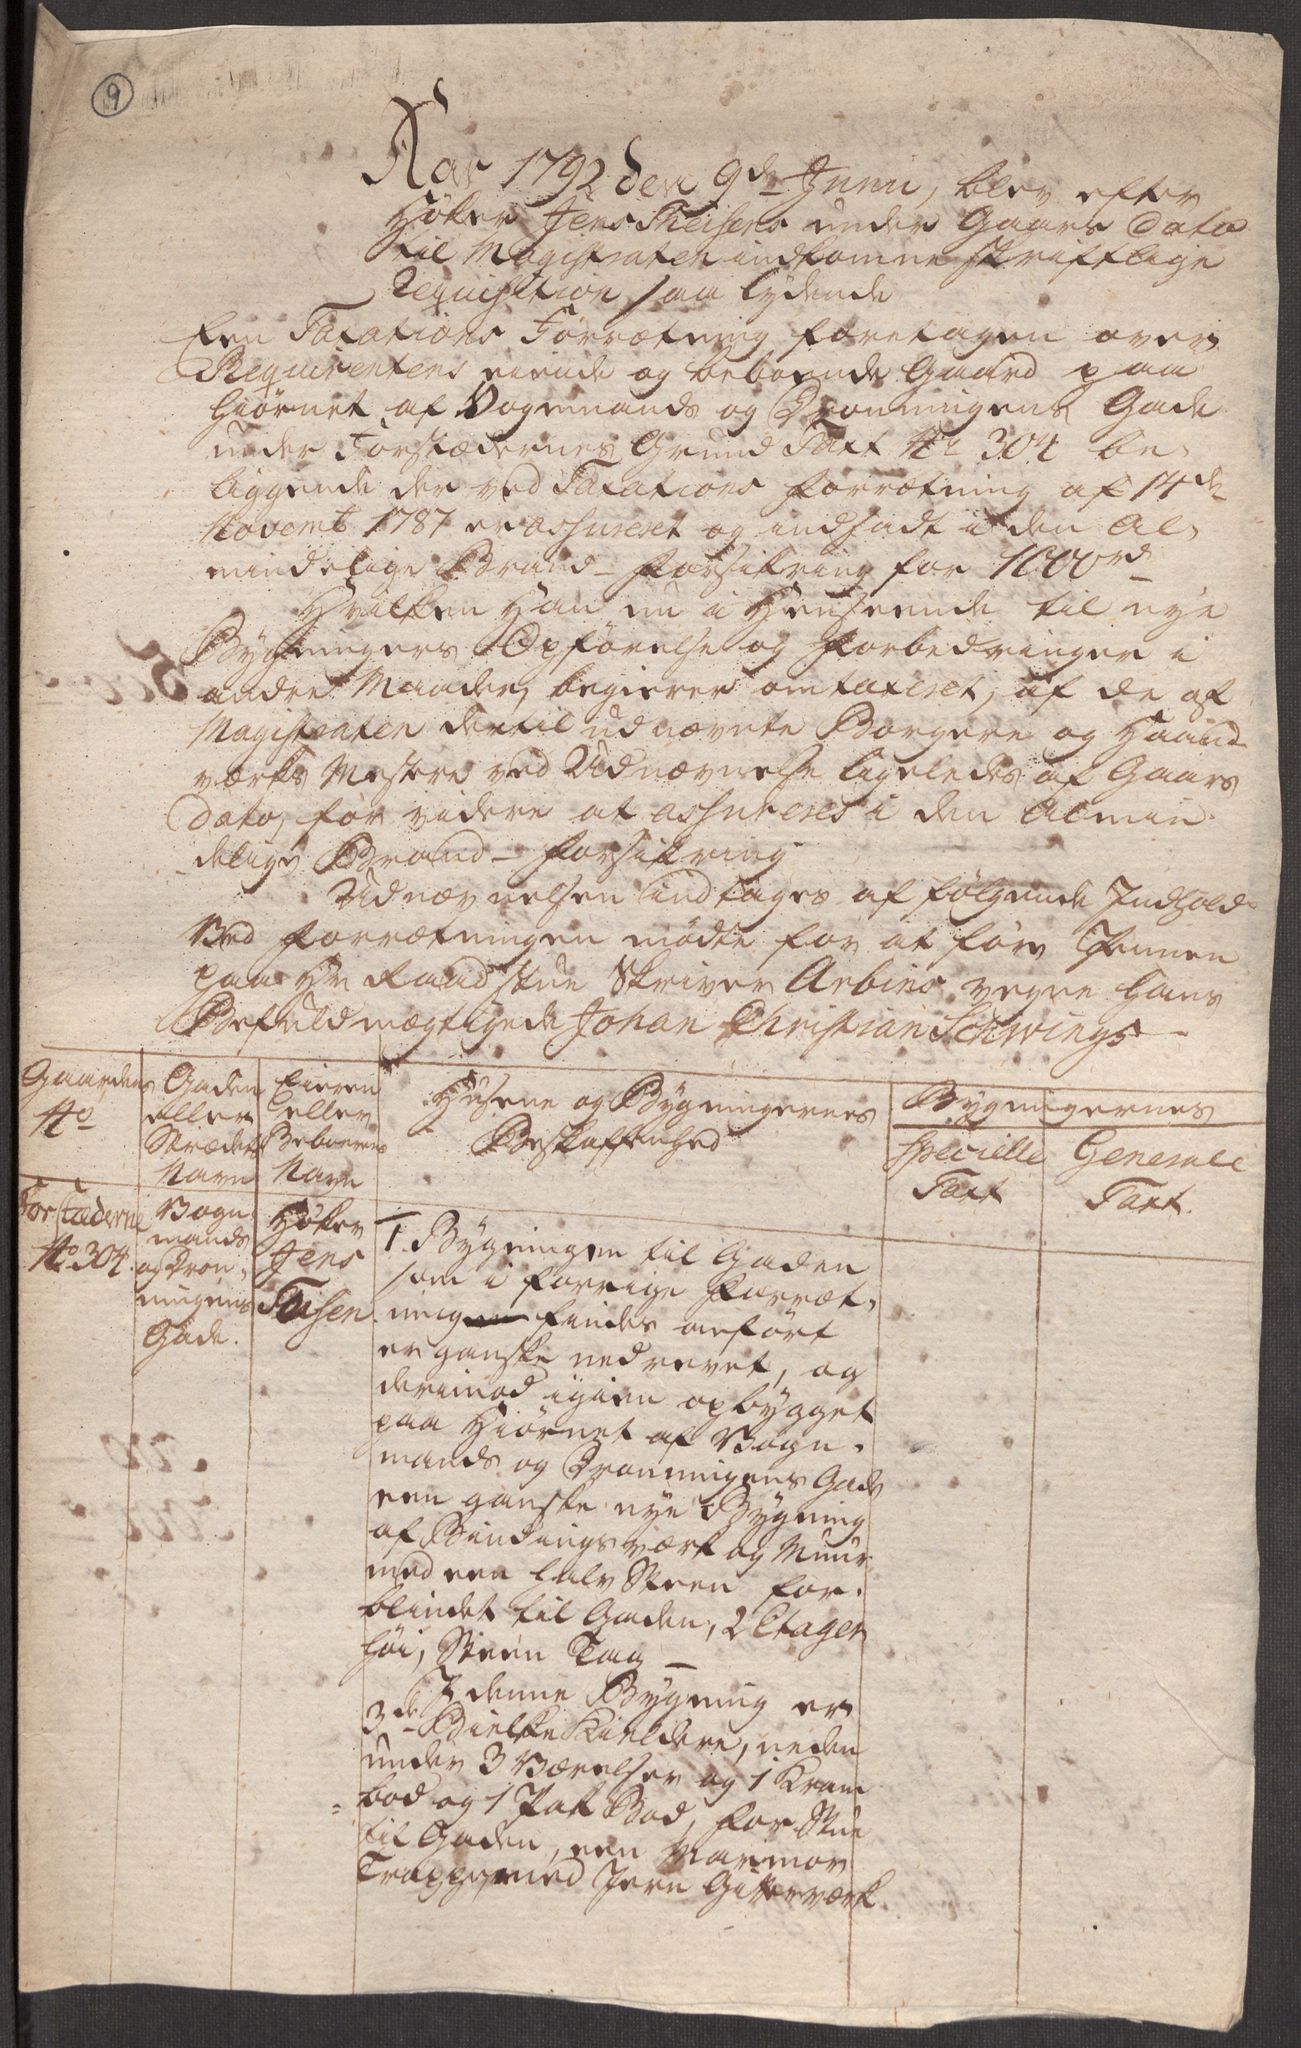 9
Aar 1792 den 9de Junii, blev efter
Høker Jens Theisens under Gaars Dato
til Magistraten indkomne skriftlige
Requisition saa lydende
Een Taxations Forrætning foretagen over
Requirentens eiende og beboende Gaard paa
Hiørnet af Vognmands og Dronningens Gade
under Forstædernes Grund Taxt No 304 be-
liggende der ved Taxations Forrætning af 14de
Novembr 1787 er assureret og indsadt i den Al-
mindelige Brand-Forsikring for 1000rd
Hvilken Han nu i Henseende til nye
Bygningers Opførelse og Forbedringer i
andre Maader, begierer omtaxeret, af de af
Magistraten dertil udnævnte Borgere og Haand-
værks Mestere ved Udnævnelse ligeledes af Gaars
Dato, for videre at assureres i den Almin-
delige Brand-Forsikring
Udnævnelsen indtages af følgende Indhold
Ved Forrætningen mødte for at føre Pennen
paa Hr Raadstue Skriver Arbiens vegne hans
Befuldmægtigede Johan Christian Schwings
Gaardens
No
Gaden
eller
Strædets
Navn
Eieren
eller
Beboerens
Navn
Husene og Bygningernes
Beskaffenhed
Bygningernes
Specielle
Taxt
Generale
Taxt.
Forstæderne
No 304.
Vogn-
mands
og Dron-
ningens
Gade.
Høker
Jens
Teisen.
1. Bygningen til Gaden
som i forrige Forræt-
ning findes anført
er ganske nedrevet, og
derimod igien opbygget
paa Hiørnet af Vogn-
mands og Dronningens Gade
een ganske nye Bygning
af Bindingsværk og Muur
med een halv Steen for-
blindet til Gaden, 2 Etager
høi, Steen Tag
I denne Bygning er
3de Bielke Kieldere, neden
under 3 Værelser og 1 Kram
bod og 1 For Stue
til Gaden, een Marmor
Trappe med Jern Gitterværk